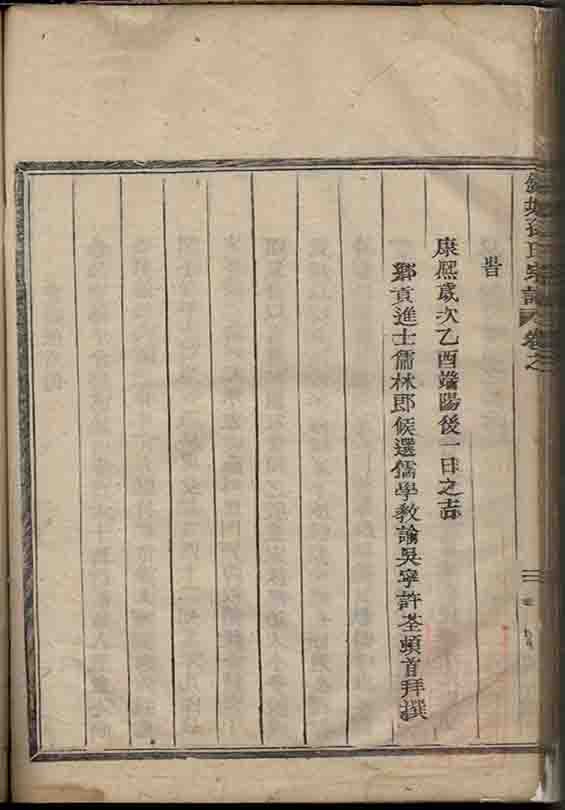 氏宗譜 卷之
旹
康熙歲次乙酉端陽後一日之吉
鄉貢進士儒林郎候選儒學教諭吳寧許荃頓首拜撰